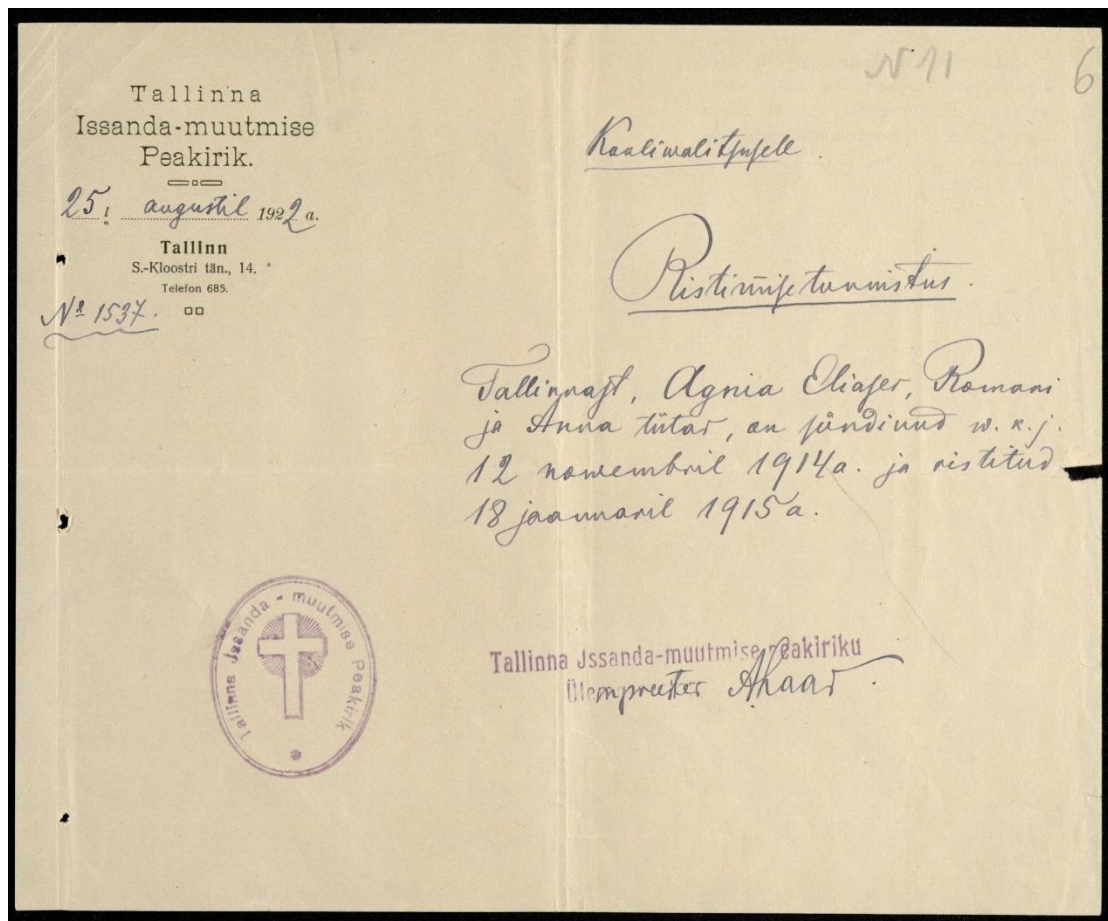 N 11
6
Tallinna
Issanda-muutmise
Peakirik.
25 l augustil 1922 a.
Tallinn
S.-Kloostri tän., 14.
Telefon 685.
№ 1537.
Kooliwalitsusele.
Ristimisetunnistus.
Tallinnast, Agnia Eliaser, Romani
ja Anna tütar, on sündinud w. k. j.
12 nowembril 1914 a. ja ristitud
18 jaanuaril 1915 a.
Tallinna Jssanda-muutmise Peakirik
Tallinna Jssanda-muutmise peakiriku
Ülempreester